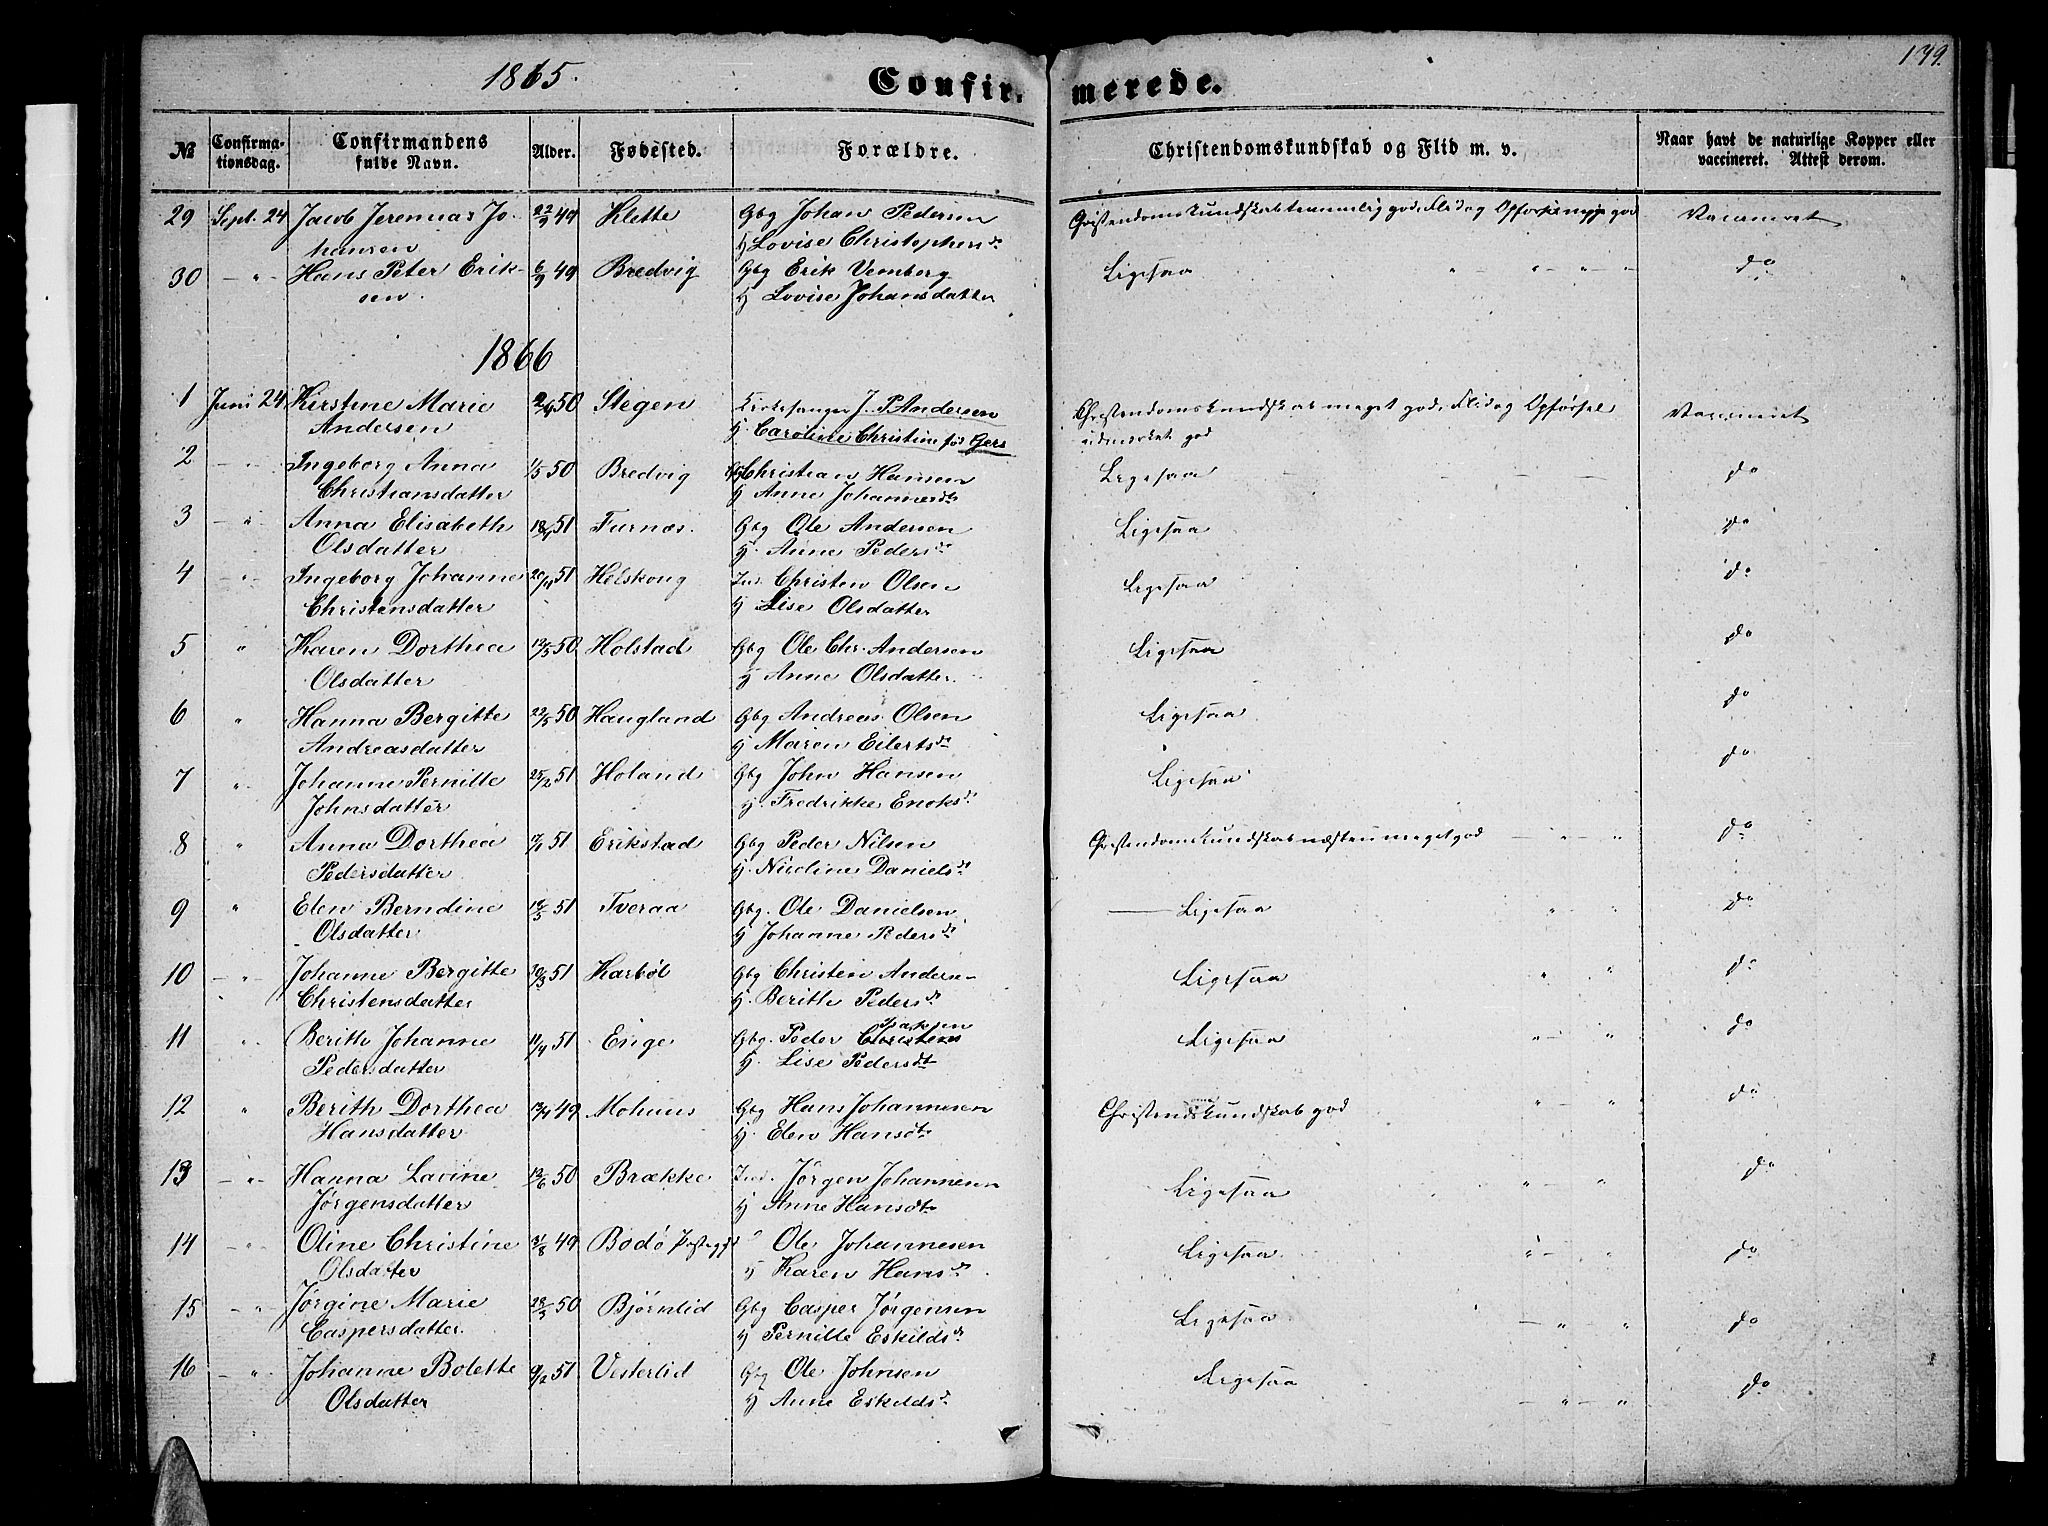 1865.
Confirmerede.
139.
№ Confirmationsdag. Confirmandens fulde Navn. Alder. Fødested. Forældre. Christendomskundskab og Flid m. v. Naar havt de naturlige Kopper eller vaccineret. Attest derom.
29 Sept. 24 Jacob Jeremias Jo- 22/9 49 Klette Gbg Johan Pedersen Cristendomskundskab temmelig god, Flid og Opførsel god Vaccineret
hansen H Lovise Christophersdr
30 — " — Hans Peter Erik- 6/9 49 Bredvig Gbg Erik Vemberg Ligesaa " — " — " — do
sen. H Lovise Johansdatter
1866
1 Juni 24 Kirstine Marie 50 Stegen Kirkesanger J. P. Andersen Christendomskundskab meget god, Flid og Opførsel Vaccineret
Andersen H. Caroline Christine fød Gers udmerket god
2 — " Ingeborg Anna 1/5 50 Bredvig Gbg Christian Hansen Ligesaa — — — do
Christiansdatter H Anne Johannesdt
3 — " Anna Elisabeth 18/1 51 Furnæs. Gbg Ole Andersen Ligesaa do
Olsdatter H. Anne Pedersdr
4 — " Ingeborg Johanne 51 Helskoug Ind. Christen Olsen Ligesaa do
Christensdatter H Lise Olsdatter
5 " Karen Dorthea 19/5 50 Holstad Gbg Ole Chr. Andersen Ligesaa do
Olsdatter H Anne Olsdatter.
6 " Hanna Bergitte 22/5 50 Haugland Gbg Andreas Olsen Ligesaa do
Andreasdatter H Maren Eilertsdr
7 " Johanne Pernille 25/2 51 Holand Gbg John Hansen Ligesaa do
Johnsdatter H. Fredrikke Enoksd
8 " Anna Dorthea 17/1 51 Erikstad Gbg Peder Nilsen Cristendomskundskab næsten meget god — " — " do
Pedersdatter H. Nicoline Danielsdr
9 " Elen Berndine 18/5 51 Tveraa Gbg. Ole Danielsen — Ligesaa " — " do
Olsdatter H Johanne Pedersdr
10 — " Johanne Bergitte 30/3 51 Karbøl Gbg Christen Andersen Ligesaa " " do
Christensdatter H. Berith Pedersdr
11 " Berith Johanne 11/4 51 Enge Gbg. Peder Isaksen Christens Ligesaa " — " do
Pedersdatter H. Lise Pedersdt
12 " Berith Dorthea 49 Mohuus Gbg Hans Johannesen Christendomskundskab god " — " do
Hansdatter H. Elen Hansdtr
13 — " — Hanna Lavine 12/6 50 Brække Ind. Jørgen Johannesen Ligesaa " — " do
Jørgensdatter H Anne Hansdtr
14 — " Oline Christine 31/8 49 Bodø Præstegjd " Ole Johannesen Ligesaa " — " do
Olsdatter H Karen Hansdr
15 — " Jørgine Marie 28/3 50 Bjørnlid Gbg Casper Jørgensen Ligesaa — " — " do
Caspersdatter. H Pernille Eskildsdr
16 — " Johanne Bolette 9/2 51 Vesterlid Gbg Ole Johnsen Ligesaa — " — " do
Olsdatter H Anne Eskildsdr